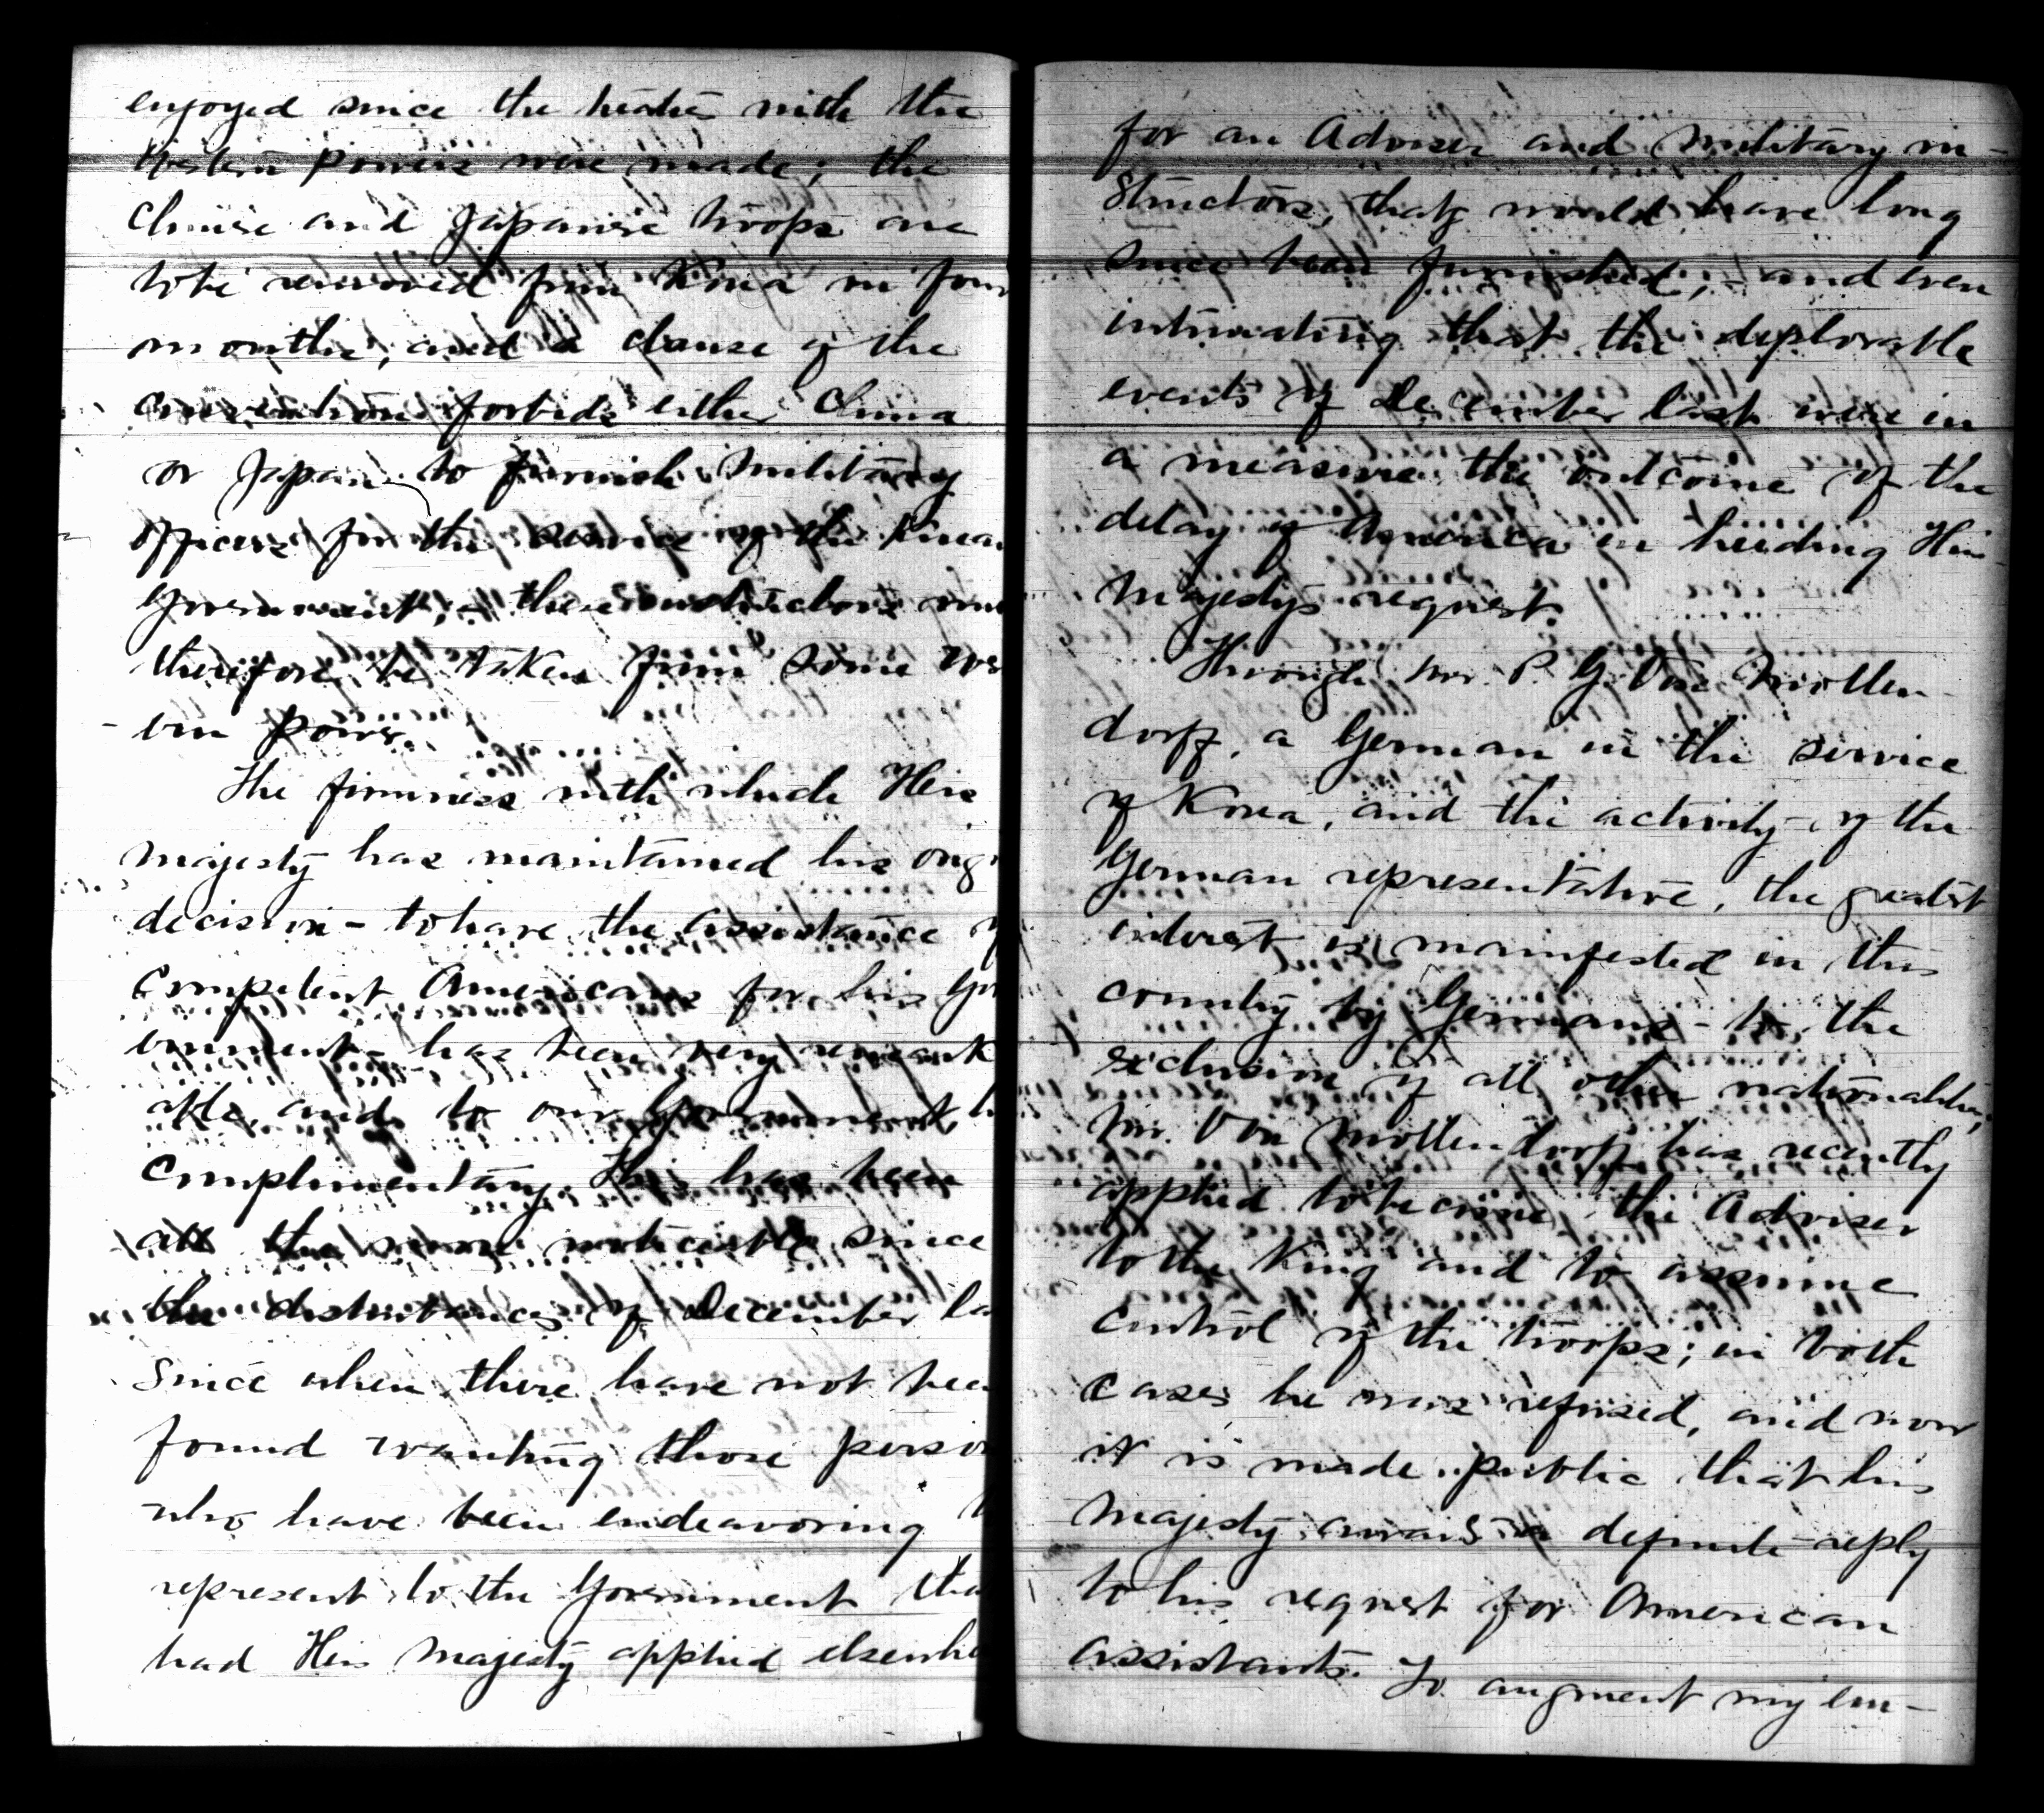 enjoyed since the treaties with the
Western powers were made; the
Chinese and Japanese troops are
to be removed from Korea in four
months, and a clause of the
convention forbids either China
or Japan to furnish military
officers for the service of the Korean
Government; - these instructors must
therefore be taken from some West
ern power.
The firmness with which His
Majesty has maintained his orig
decision - to have the assistance of
competent Americans for his Gov
ernment - has been very remark
able, and to our Government,
complimentary. This has been
all the more noticeable since
the disturbances of December las
since when there have not been
found wanting those person
who have been endeavoring t
represent to the Government that
had His Majesty applied elsewhe
for an Adviser and military in-
structors, they would have long
since been furnished; - and even
intimating that the deplorable
events of December last were in
a measure the outcome of the
delay of America in heeding His
Majesty's request.
Through Mr. P. G. Von Mollen
dorff, a German in the service
of Korea, and the activity of the
German representative, the greatest
interest is manifested in this
country by Germans - to the
exclusion of all other nationalities,
Mr. Von Mollendorff has recently
applied to become the Adviser
to the King and to assume
control of the troops; in both
cases he was refused, and now
it is made public that his
Majesty awaits a definite reply
to his request for American
assistants. To augment my em-